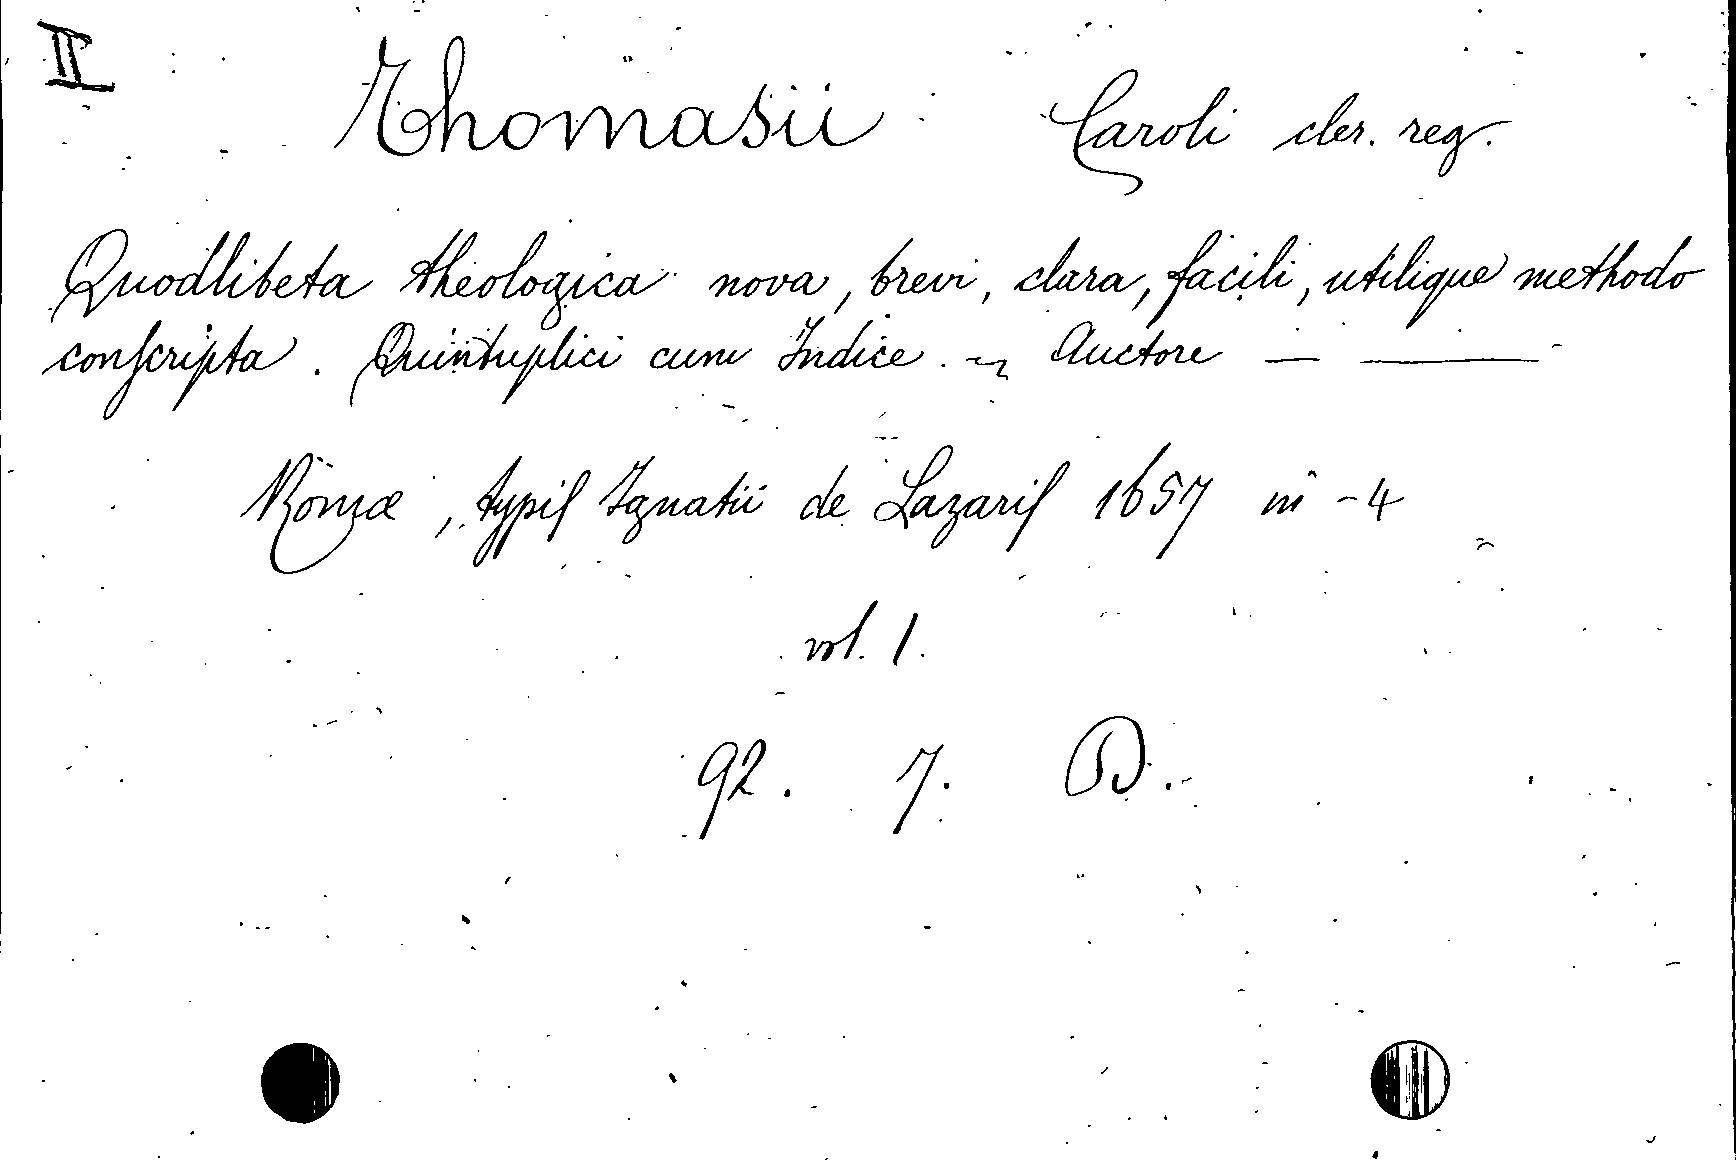 II
Thomasii Caroli cler. reg.
Quodlibeta theologica nova, brevi, clara, facili, utilique methodo
conſcripta. Quintuplici cum Indice. ~ Auctore — ——
Romæ, typiſ Ignatii de Lazariſ 1657 in -4
vol. 1.
92. 7. D.